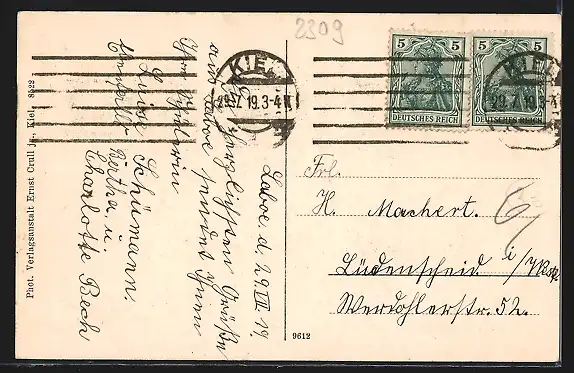 2309
5 5
5 5
DEUTSCHES REICH
DEUTSCHES REICH
KIEL
29.7.19.3-4N
KIEL
29.7.19.3-4
Laboe. d. 29.VII.19.
Herzlichsten Grüße
aus Laboe sendet Ihnen
Ihre Schülerin
Luise Schümann.
Bertha u.
Charlotte Bech
Frl.
H. Machert.
Lüdenscheid i/Westf.
Werdohlerstr. 52.
6
Phot. Verlagsanstalt Ernst Crull jr., Kiel. 8822
9612